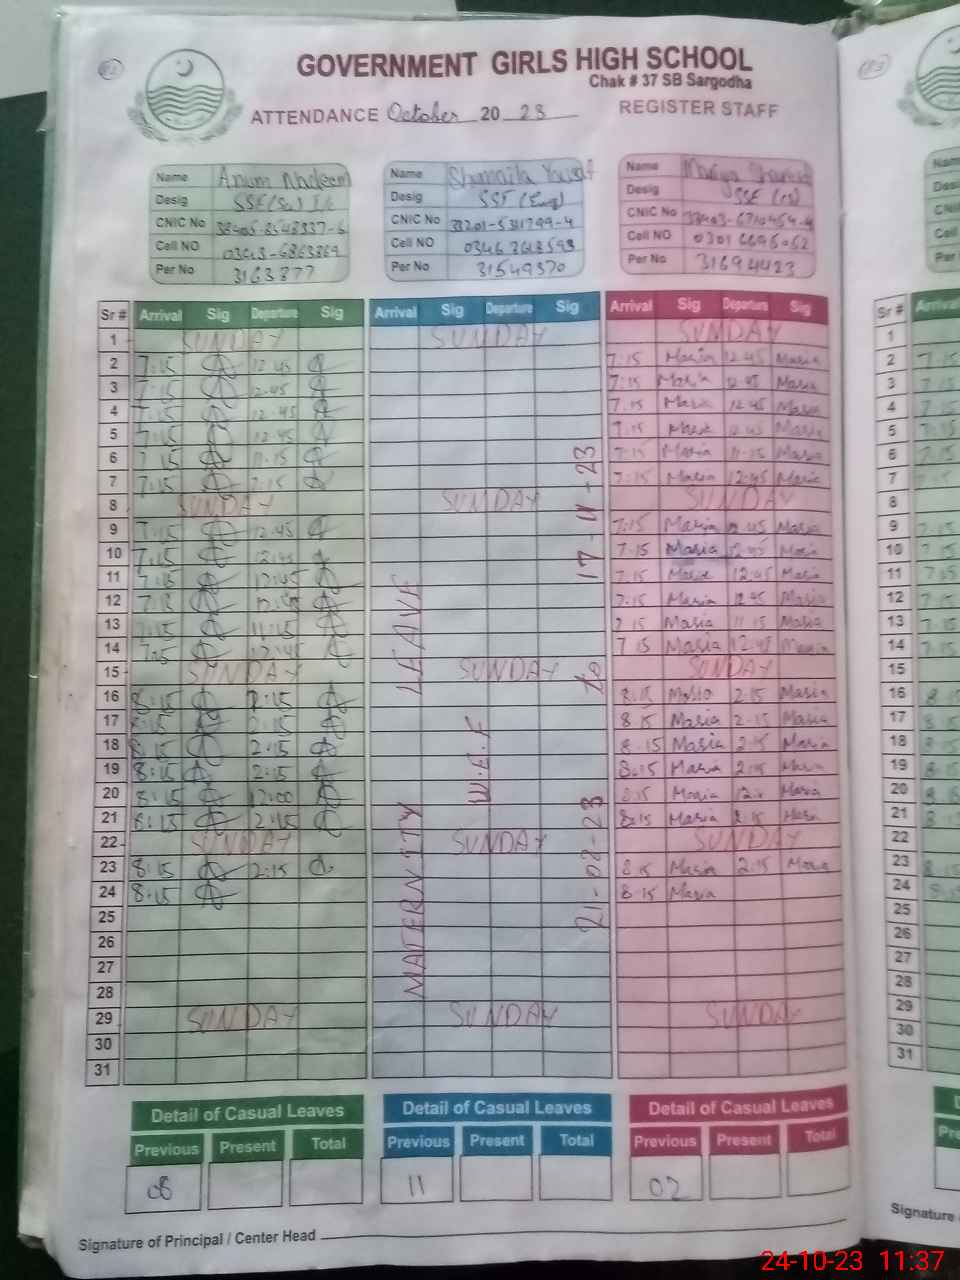 GOVERNMENT GIRLS HIGH SCHOOL
Chak # 37 SB Sargodha
ATTENDANCE October 20 23 REGISTER STAFF
Name Anum Nadeem Name Shumaila Yousaf Name Mariya
Desig Desig SSE (Eng) Desig SSE
CNIC No CNIC No CNIC No
Cell NO Cell NO Cell NO
Per No 3163877 Per No 31549370 Per No 31694423
Sr # Arrival Sig Departure Sig Arrival Sig Departure Sig Arrival Sig Departure Sig
1 SUNDAY SUNDAY SUNDAY
2 7:15 12:45 7:15 Maria 12:45 Maria
3 7:15 12:45 7:15 Maria 12:45 Maria
4 7:15 12:45 7:15 Maria 12:45 Maria
5 7:15 12:45 7:15 Maria 12:45 Maria
6 7:15 11:15 7:15 Maria 11:15 Maria
7 7:15 7:15 Maria 12:45 Maria
8 SUNDAY SUNDAY SUNDAY
9 7:15 12:45 7:15 Maria 12:45 Maria
10 7:15 12:45 7:15 Maria 12:45 Maria
11 7:15 12:45 7:15 Maria 12:45 Maria
12 7:15 12:45 7:15 Maria 12:45 Maria
13 7:15 11:15 7 15 Maria 11 15 Maria
14 12:45 7 15 Maria 12:45 Maria
15 SUNDAY SUNDAY SUNDAY
16 8:15 2:15 8:15 Maria 2:15 Maria
17 8:15 2:15 8:15 Maria 2:15 Maria
18 8:15 2:15 8:15 Maria 2:15 Maria
19 8:15 2:15 8:15 Maria 2:15 Maria
20 8:15 12:00 8:15 Maria Maria
21 8:15 2:15 8:15 Maria 2:15 Maria
22 SUNDAY SUNDAY SUNDAY
23 8:15 2:15 8:15 Maria 2:15 Maria
24 8:15 8:15 Maria
25
26
27
28
29 SUNDAY SUNDAY SUNDAY
30
31
MATERNITY LEAVE
W.E.F
21-08-23 to 17-11-23
Detail of Casual Leaves Detail of Casual Leaves Detail of Casual Leaves
Previous Present Total Previous Present Total Previous Present Total
08 11 02
Signature of Principal / Center Head
Signature
24-10-23 11:37